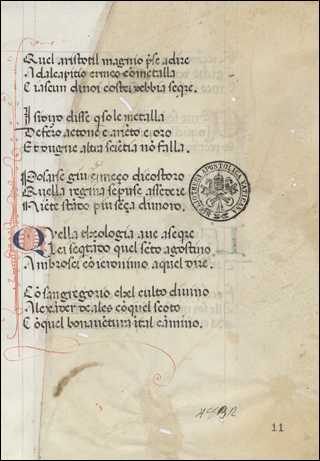 Quel aristotil magnio pse adire
Adalcapitio ermeo cometalla
Ciascun dinoi costei debbia seqre.
Isiono disse qsole metalla
Defero actone e arieto e joro
Et ongne altra scietia nō falla.
Posarse giu ermeço dicostoro
Quella regina sepuse assedere
Niete stādo piu seça dimoro.
Quella theologia ave aseqre
Lei seqtādo quel scto agostino
Ambrosei cō ieronimo aquel dire.
Cō san gregorio chel culto divino
Alexāder de ales cō quel scoto
Cō quel bonavētura ital camino.
BIBLIOTHECA APOSTOLICA VATICANA
11